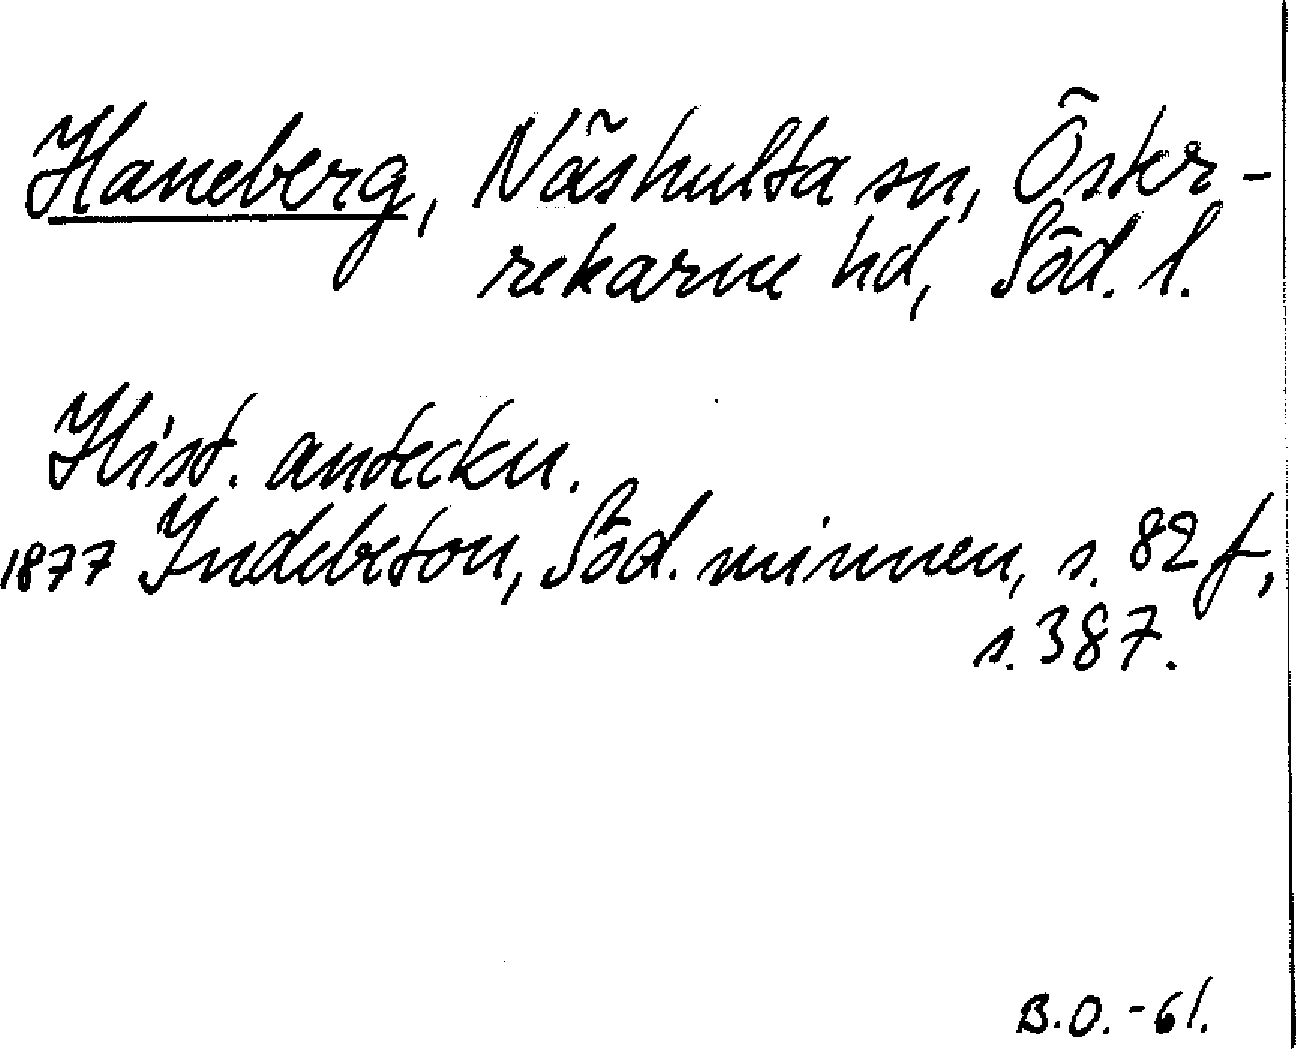 Haneberg, Näshulta sn, Öster-
rekarne hd, Söd. l.
Hist. anteckn.
1877 Indebetou, Söd. minnen, s. 82 f,
s. 387.
B.O.-61.